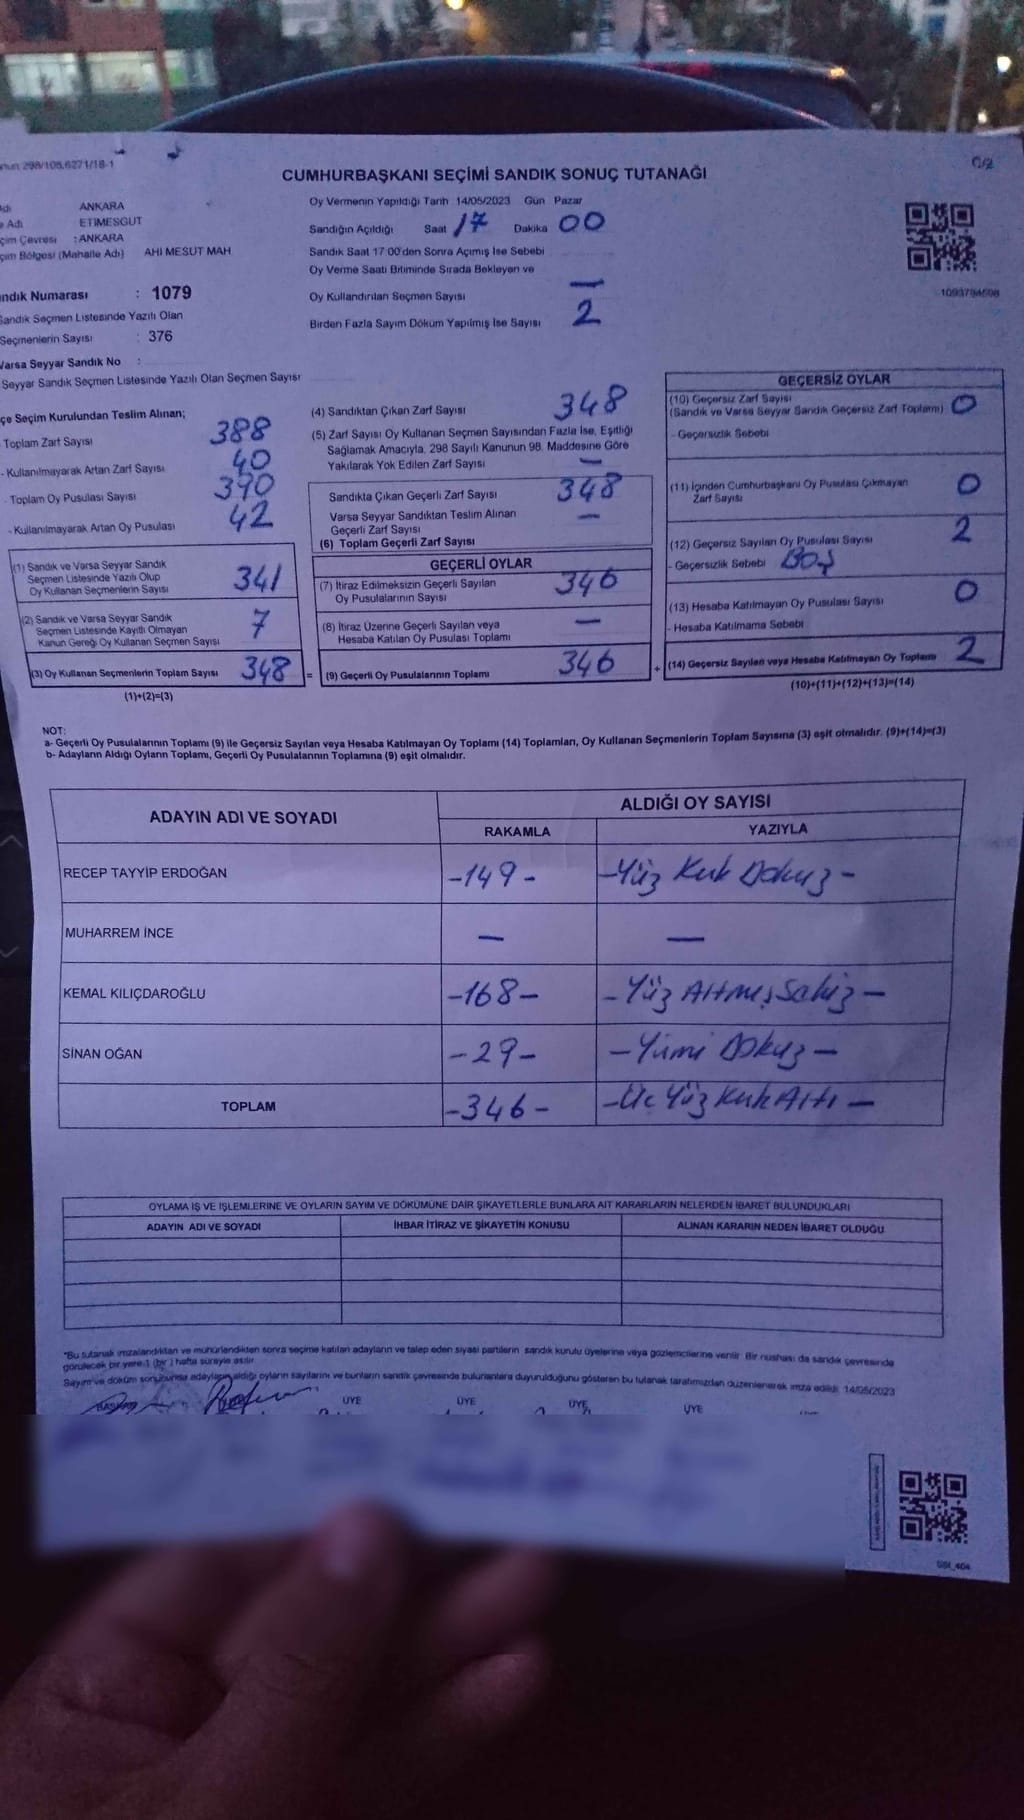 298/108,6271/18-1
C/2
CUMHURBAŞKANI SEÇİMİ SANDIK SONUÇ TUTANAĞI
ANKARA
Adı ETİMESGUT
Çevresi : ANKARA
Bölgesi (Mahalle Adı) AHİ MESUT MAH
Sandık Numarası : 1079
Sandık Seçmen Listesinde Yazılı Olan
Seçmenlerin Sayısı : 376
Varsa Seyyar Sandık No :
Seyyar Sandık Seçmen Listesinde Yazılı Olan Seçmen Sayısı
Oy Vermenin Yapıldığı Tarih 14/05/2023 Gün Pazar
Sandığın Açıldığı Saat 17 Dakika 00
Sandık Saat 17:00'den Sonra Açımış İse Sebebi
Oy Verme Saati Bitiminde Sırada Bekleyen ve
Oy Kullandırılan Seçmen Sayısı —
Birden Fazla Sayım Döküm Yapılmış İse Sayısı 2
1093794698
Seçim Kurulundan Teslim Alınan;
Toplam Zarf Sayısı 388
- Kullanılmayarak Artan Zarf Sayısı 40
- Toplam Oy Pusulası Sayısı 390
- Kullanılmayarak Artan Oy Pusulası 42
(1) Sandık ve Varsa Seyyar Sandık
Seçmen Listesinde Yazılı Olup
Oy Kullanan Seçmenlerin Sayısı 341
(2) Sandık ve Varsa Seyyar Sandık
Seçmen Listesinde Kayıtlı Olmayan
Kanun Gereği Oy Kullanan Seçmen Sayısı 7
(3) Oy Kullanan Seçmenlerin Toplam Sayısı 348 =
(1)+(2)=(3)
(4) Sandıktan Çıkan Zarf Sayısı 348
(5) Zarf Sayısı Oy Kullanan Seçmen Sayısından Fazla İse, Eşitliği
Sağlamak Amacıyla, 298 Sayılı Kanunun 98. Maddesine Göre
Yakılarak Yok Edilen Zarf Sayısı —
Sandıkta Çıkan Geçerli Zarf Sayısı 348
Varsa Seyyar Sandıktan Teslim Alınan
Geçerli Zarf Sayısı —
(6) Toplam Geçerli Zarf Sayısı
GEÇERLİ OYLAR
(7) İtiraz Edilmeksizin Geçerli Sayılan
Oy Pusulalarının Sayısı 346
(8) İtiraz Üzerine Geçerli Sayılan veya
Hesaba Katılan Oy Pusulası Toplamı —
(9) Geçerli Oy Pusulalarının Toplamı 346 +
GEÇERSİZ OYLAR
(10) Geçersiz Zarf Sayısı
(Sandık ve Varsa Seyyar Sandık Geçersiz Zarf Toplamı) 0
- Geçersizlik Sebebi
(11) İçinden Cumhurbaşkanı Oy Pusulası Çıkmayan
Zarf Sayısı 0
(12) Geçersiz Sayılan Oy Pusulası Sayısı 2
- Geçersizlik Sebebi BOŞ
(13) Hesaba Katılmayan Oy Pusulası Sayısı 0
- Hesaba Katılmama Sebebi
(14) Geçersiz Sayılan veya Hesaba Katılmayan Oy Toplamı 2
(10)+(11)+(12)+(13)=(14)
NOT:
a- Geçerli Oy Pusulalarının Toplamı (9) ile Geçersiz Sayılan veya Hesaba Katılmayan Oy Toplamı (14) Toplamları, Oy Kullanan Seçmenlerin Toplam Sayısına (3) eşit olmalıdır. (9)+(14)=(3)
b- Adayların Aldığı Oyların Toplamı, Geçerli Oy Pusulalarının Toplamına (9) eşit olmalıdır.
ADAYIN ADI VE SOYADI ALDIĞI OY SAYISI
RAKAMLA YAZIYLA
RECEP TAYYİP ERDOĞAN -149- -Yüz Kırk Dokuz-
MUHARREM İNCE — —
KEMAL KILIÇDAROĞLU -168- -Yüz Altmış Sekiz-
SİNAN OĞAN -29- -Yirmi Dokuz-
TOPLAM -346- -Üç Yüz Kırk Altı-
OYLAMA İŞ VE İŞLEMLERİNE VE OYLARIN SAYIM VE DÖKÜMÜNE DAİR ŞİKAYETLERLE BUNLARA AİT KARARLARIN NELERDEN İBARET BULUNDUKLARI
ADAYIN ADI VE SOYADI İHBAR İTİRAZ VE ŞİKAYETİN KONUSU ALINAN KARARIN NEDEN İBARET OLDUĞU
"Bu tutanak imzalandıktan ve mühürlendikten sonra seçime katılan adayların ve talep eden siyasi partilerin sandık kurulu üyelerine veya gözlemcilerine verilir. Bir nüshası da sandık çevresinde
görülecek bir yere 1 (bir) hafta süreyle asılır.
Sayım ve döküm sonucunda adayların aldığı oyların sayılarını ve bunların sandık çevresinde bulunanlara duyurulduğunu gösteren bu tutanak tarafımızdan düzenlenerek imza edildi. 14/05/2023
BAŞKAN ÜYE ÜYE ÜYE ÜYE